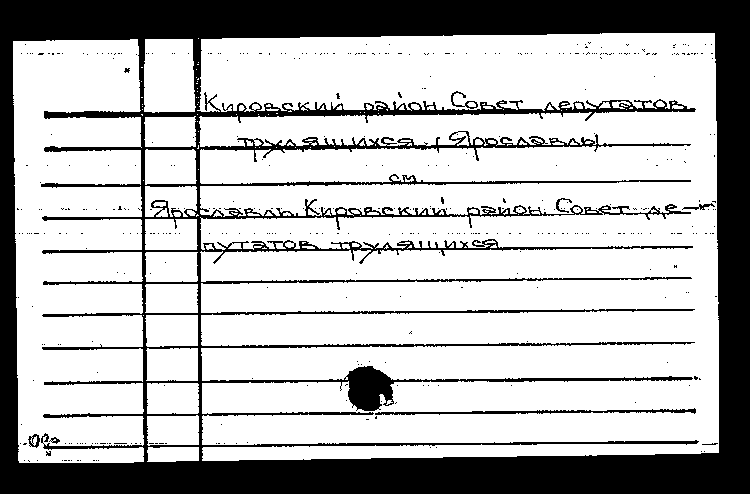 Кировский район. Совет депутатов
трудящихся. (Ярославль).
см.
Ярославль. Кировский район. Совет де-
путатов трудящихся